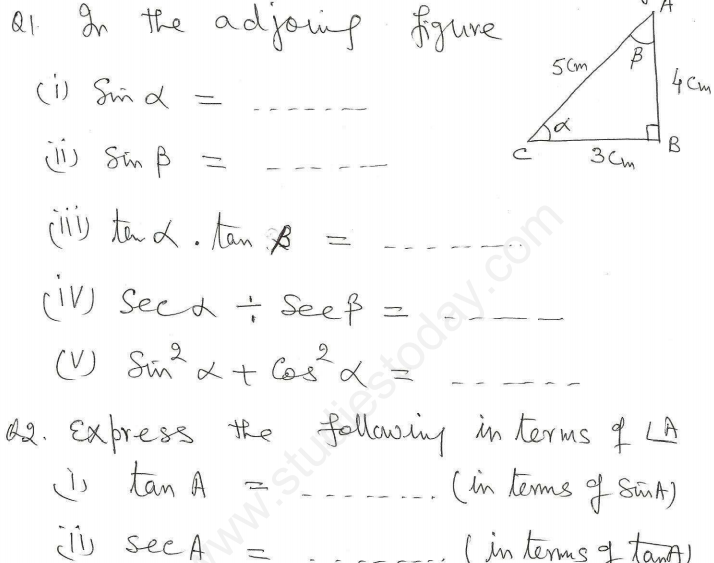 Q1. In the adjoing figure
(i) Sin α = -------
(ii) Sin β = -------
(iii) tan α . tan β = --------
(iv) Sec α ÷ Sec β = -----
(V) Sin² α + Cos² α = ------
A
β
5 Cm
4 Cm
α
C
3 Cm
B
Q2. Express the following in terms of ∠A
(i) tan A = -------- (in terms of SinA)
(ii) sec A = -------- (in terms of tanA)
www.studiestoday.com